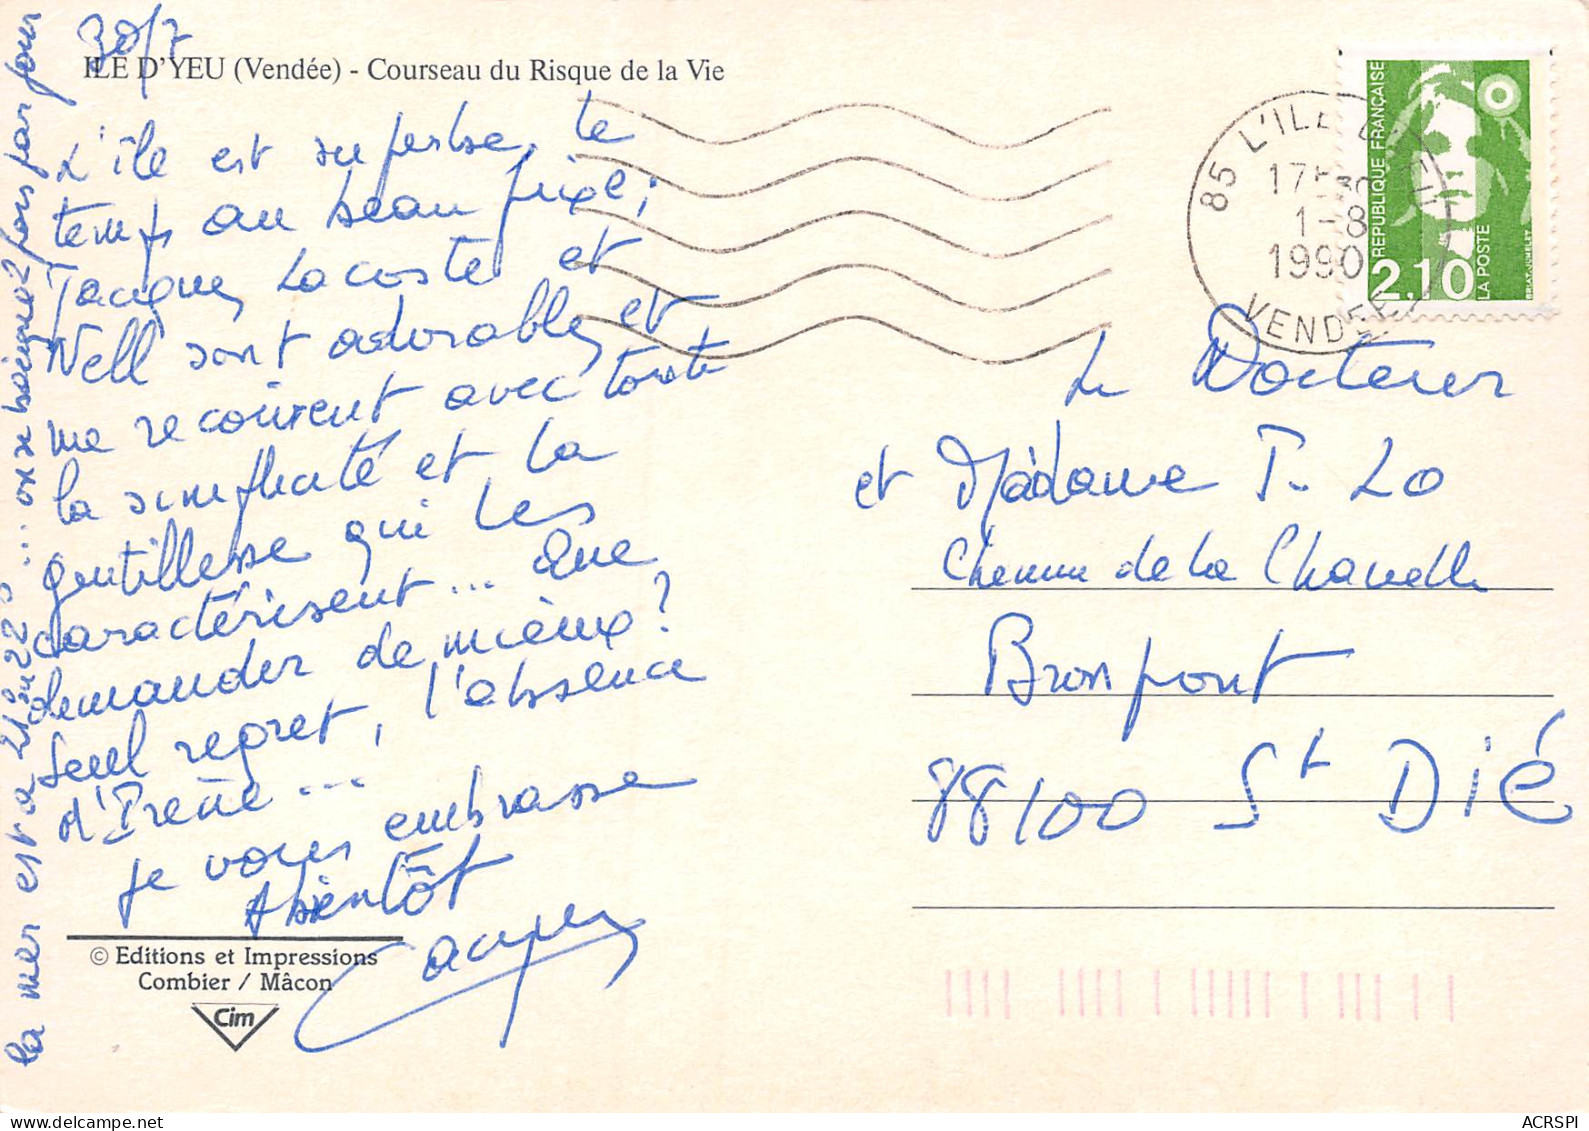 30/7
ILE D'YEU (Vendée) - Courseau du Risque de la Vie
L'île est superbe, le
temps au beau fixe;
Jacques Lacoste et
Nell sont adorables et
me reçoivent avec toute
la simplicité et la
gentillesse qui les
caractérisent... Que
demander de mieux?
Seul regret, l'absence
d'Irène...
Je vous embrasse
A bientôt
Jacques
la mer est à 21° ou 22° ... on se baigne 2 fois par jour
© Editions et Impressions
Combier / Mâcon
Cim
85 L'ILE D'YEU
17H30
1-8
1990
VENDÉE
REPUBLIQUE FRANÇAISE
2,10
LA POSTE
Le Docteur
et Madame P. LO
Chemin de la Chavelle
Bronpont
88100 St DIÉ
ACRSPI